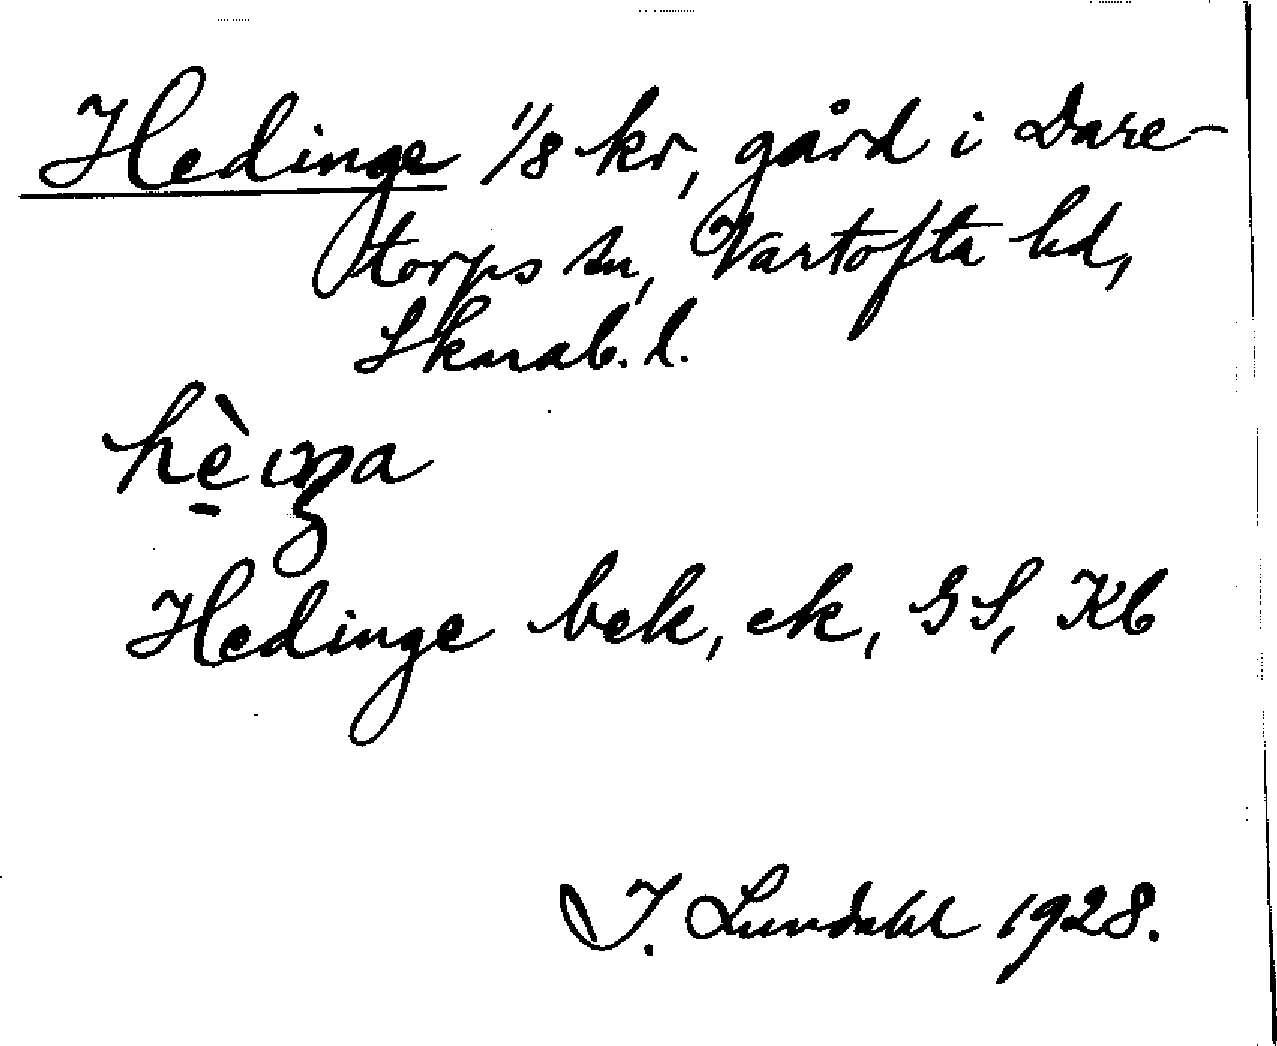 Hedinge 1/8 kr, gård i Dare-
torps sn, Vartofta hd,
Skarab. l.
Hedinge bek, ek, GS, Kb
I. Lundahl 1928.